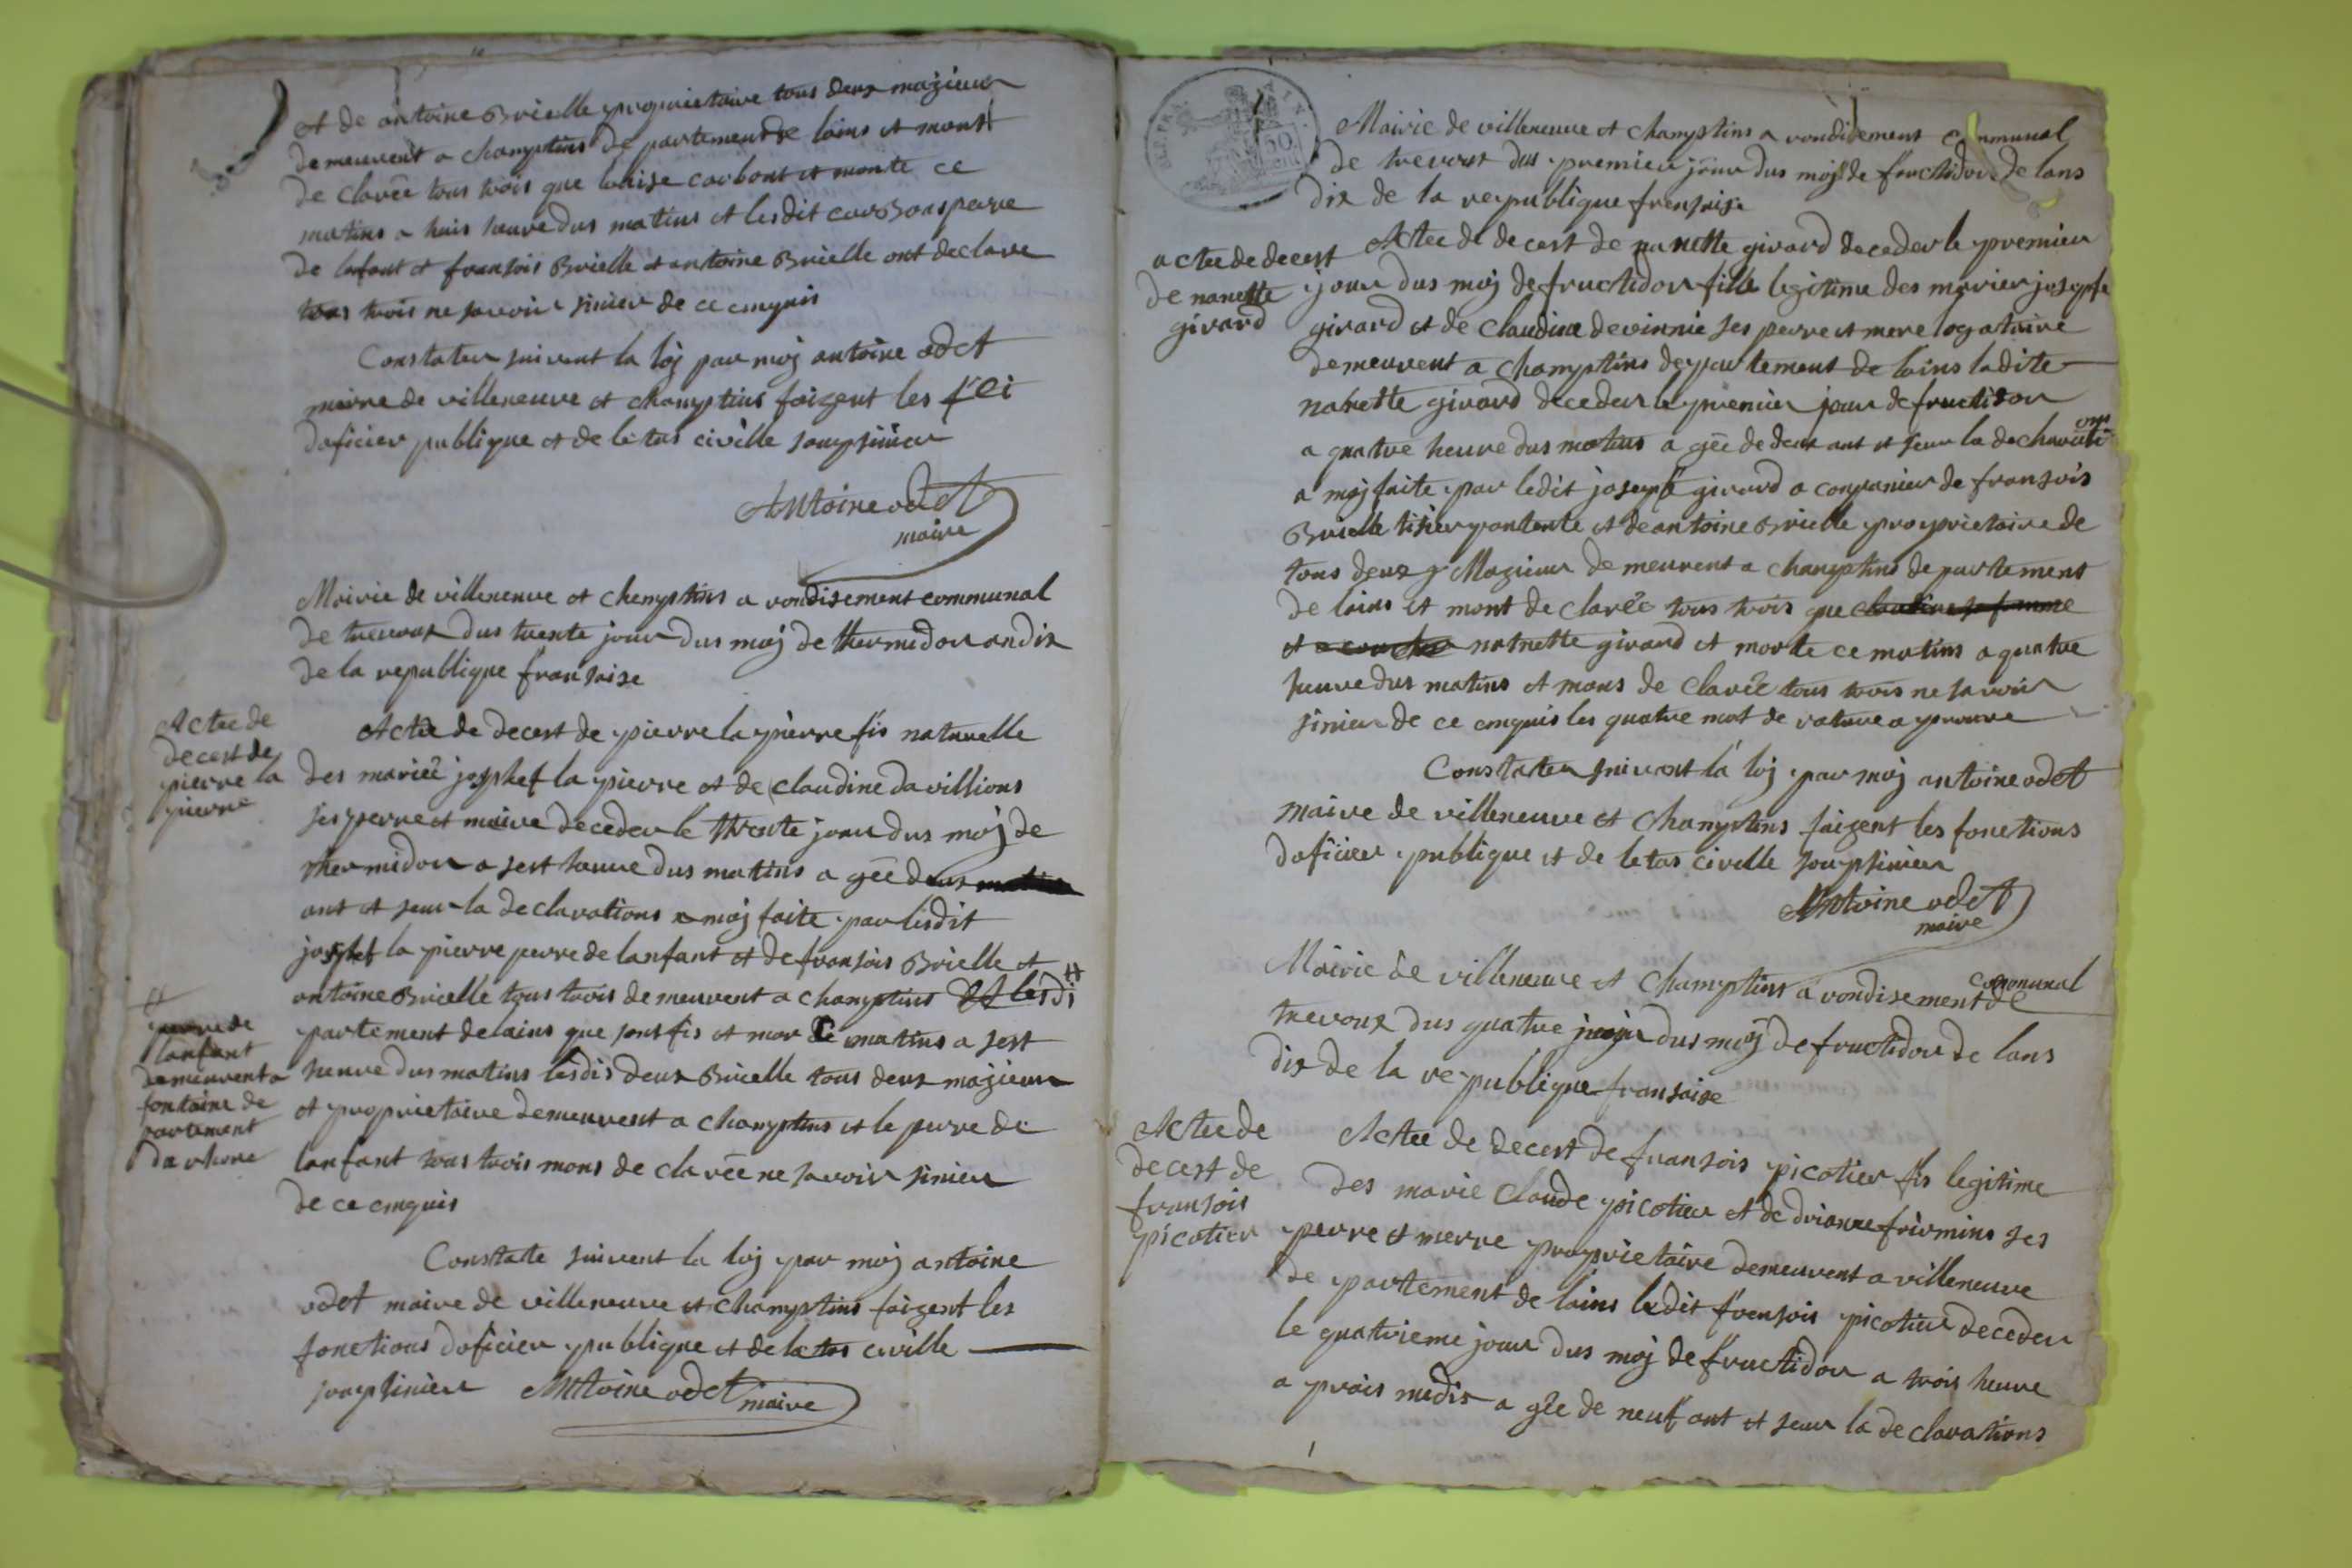 et de antoine Brielle proprietaire tous deux majieur
demeurent a champtins departement de loins et monst
de claree tous trois que louise carbont et morte ce
matins a huis heure dus matins et lesdit carbons perre
de lafant et fransois Brielle et antoine Brielle ont declare
tous trois ne savoir sinier de ce enquis
Constater suivent la loj par moj antoine odet
maire de villeneuve et champtins faizent les
doficier publique et deletas civille soupsinier
Antoine odet
maire
Mairie de villeneuve et chemptins a rondisement communal
de trevoux dus trente jour dus moj de thermidor an dix
de la republique fransaise
Actee de
decest de
pierre la
pierre
Actee de decest de pierre la pierre fis naturelle
des mariee josphef la pierre et de claudine davillions
ses perre et maire deceder le trente jour dus moj de
thermidor a sest heure dus matins a gée deux
ant et seur la declarations a moj faite par lesdit
josphef la pierre perre de lanfant et de fransois Brielle et
antoine Brielle tous trois demeurent a champtins et lesdi
partement de lains que sont fis et mor ce matins a sest
heure dus matins lesdis deux Brielle tous deux majieur
et proprietaire demeurent a champtins et le perre de
lanfant tous trois mons de clarée ne savoir sinier
de ce enquis
perre de
lanfant
demeurent a
fontaine de
partement
du rhone
Constate suivent la loj par moj antoine
odet maire de villeneuve et champtins faizent les
fonctions doficier publique et de letas civille
soupsinier Antoine odet maire
Mairie de villeneuve et champtins a rondisement communal
de trevoux dus premier jour dus mojs de fructidor de lans
dix de la republique fransaise
actee de decest
de nanette
girard
Actee de decest de nanette girard deceder le premier
jour dus moj de fructidor fille legitime des marier josepfe
girard et de claudine devinnie ses perre et mere logatoire
demeurent a champtins departement de loins ladite
nanette girard deceder le premier jour de fructidor
a quatre heure dus matins a gée de deux ant et seur la declarati ons
a moj faite par ledit joseph girard a conpanier de fransois
Brielle tisier pantente et de antoine Brielle proprietaire de
tous deux Majieur demeurent a champtins departement
de loins et mont de clarée tous trois que claudine sa femme
et a coucher natnette girard et morte ce matins a quatre
heure dus matins et mons de clarée tous trois ne savoir
sinier de ce enquis les quatre mot de rature a prouve
Constater suivent la loj par moj antoine odet
maire de villeneuve et champtins faizent les fonctions
doficier publique et de letas civelle soupsinier
Antoine odet
maire
Mairie de villeneuve et champtins a rondisement communal de
trevoux dus quatre jour dus moj de fructidor de lans
dix de la republique fransaise
Actee de
decest de
fransois
picotier
Actee de decest de fransois picotier fis legitime
des marie claude picotier et de drianne friomins ses
perre et merre proprietaire demeurent a villeneuve
departement de loins ledit fransois picotier deceder
le quatrieme jour dus moj de fructidor a trois heure
a prais midis a gée de neuf ant et seur la declarations